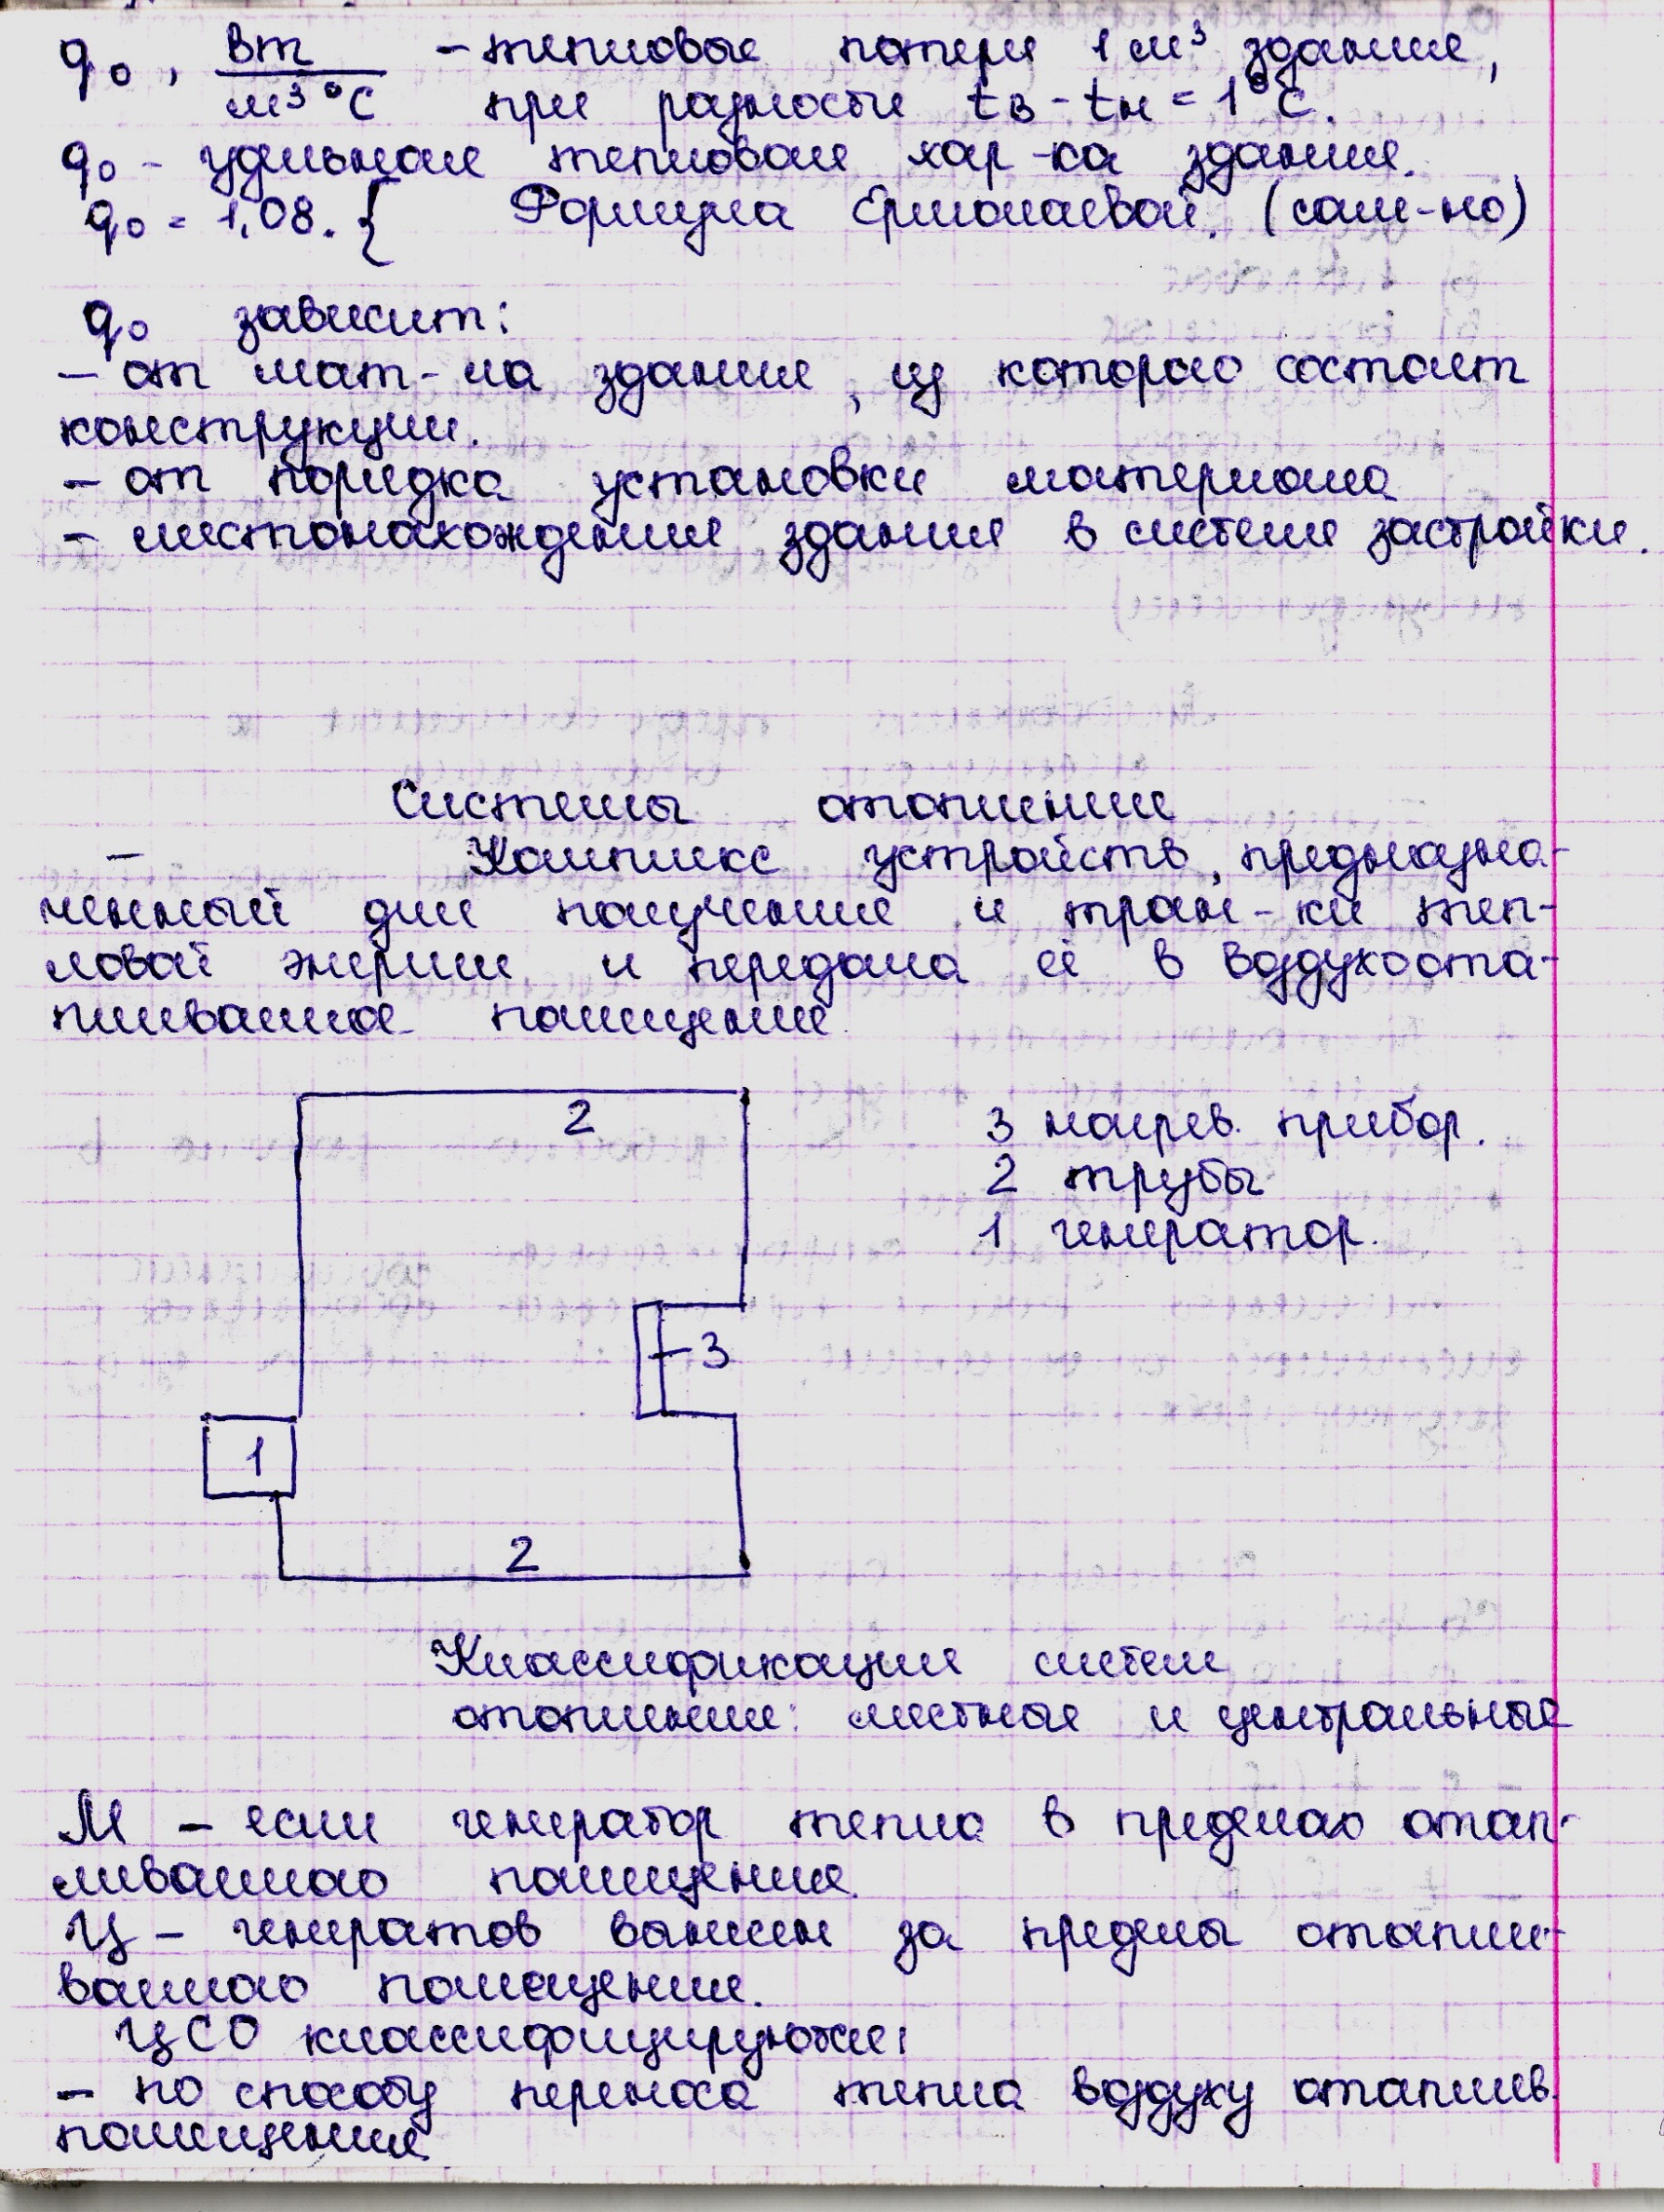 q₀, Вт/м³°С – тепловые потери 1 м³ здания,
при разности tв - tн = 1°С.
q₀ - удельная тепловая хар-ка здания.
q₀ = 1,08. { Формула Ермолаевой. (сам-но)
q₀ зависит:
– от мат-ла здания, из которого состоит
конструкции.
– от порядка установки материала
– местонахождения здания в системе застройки.
Системы отопления
– Комплекс устройств, предназна-
ченный для получения и тран-ки теп-
ловой энергии и передача её в воздухоота-
пливаемое помещение.
2
3 нагрев. прибор.
2 трубы
1 генератор.
3
1
2
Классификация систем
отопления: местные и центральные
М – если генератор тепла в пределах отап-
ливаемого помещения.
Ц – генератов вынесен за пределы отапли-
ваемого помещения.
ЦСО классифицируются:
– по способу переноса тепла воздуху отаплив.
помещения